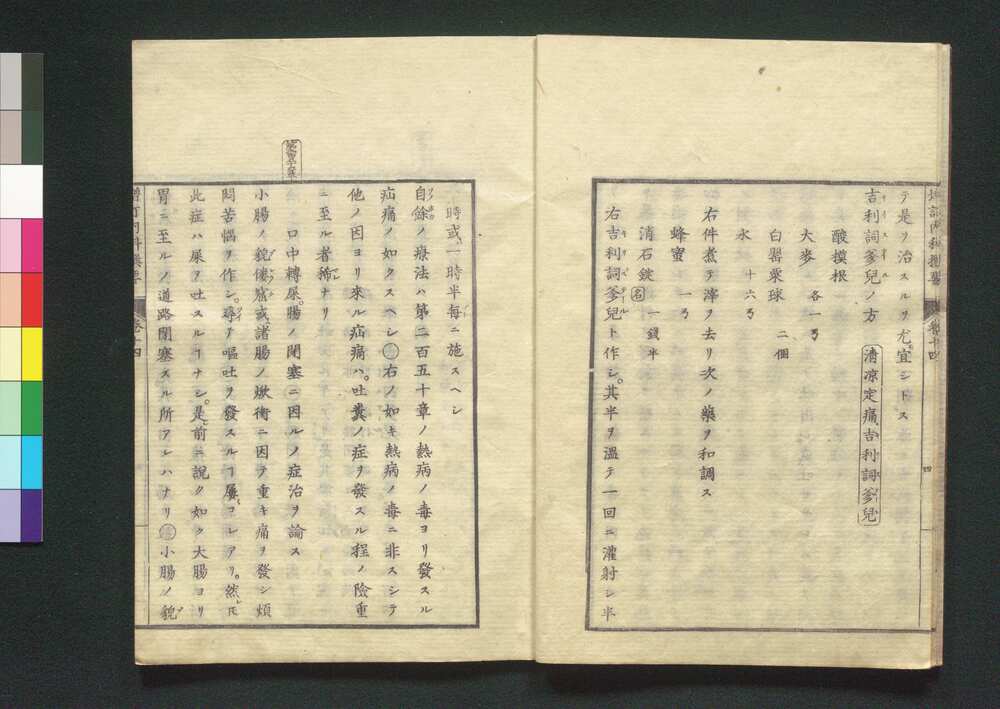 増訂内科撰要 巻十四
四
テ是ヲ治スルヲ尤宜シトス
吉利詞爹兒ノ方 清凉定痛吉利詞爹兒
酸摸根
大麥 各一弓
白罌粟球 二個
水 十六弓
右件煮テ滓ヲ去リ次ノ藥ヲ和調ス
蜂蜜 一弓
消石 名 一錢半
右吉利詞爹兒ト作シ其半ヲ温テ一回ニ灌射シ半
時或一時半毎ニ施スヘシ
自餘ノ療法ハ第二百五十章ノ熱病ノ毒ヨリ發スル
疝痛ノ如クスヘシ 右ノ如キ熱病ノ毒ニ非スシテ
他ノ因ヨリ來ル疝痛ハ吐糞ノ症ヲ發スル程ノ險重
ニ至ル者稀ナリ
口中轉屎腸ノ閉塞ニ因ルノ症治ヲ論ス
小腸ノ貌僂窳或諸腸ノ焮衝ニ因テ重キ痛ヲ發シ煩
悶苦惱ヲ作シ尋テ嘔吐ヲ發スルヿ屢コレアリ然𪜈
此症ハ屎ヲ吐スルヿナシ是前ニ說ク如ク大腸ヨリ
胃ニ至ルノ道路閉塞スル所アレハナリ 小腸ノ貌
増訂内科撰要 巻十四